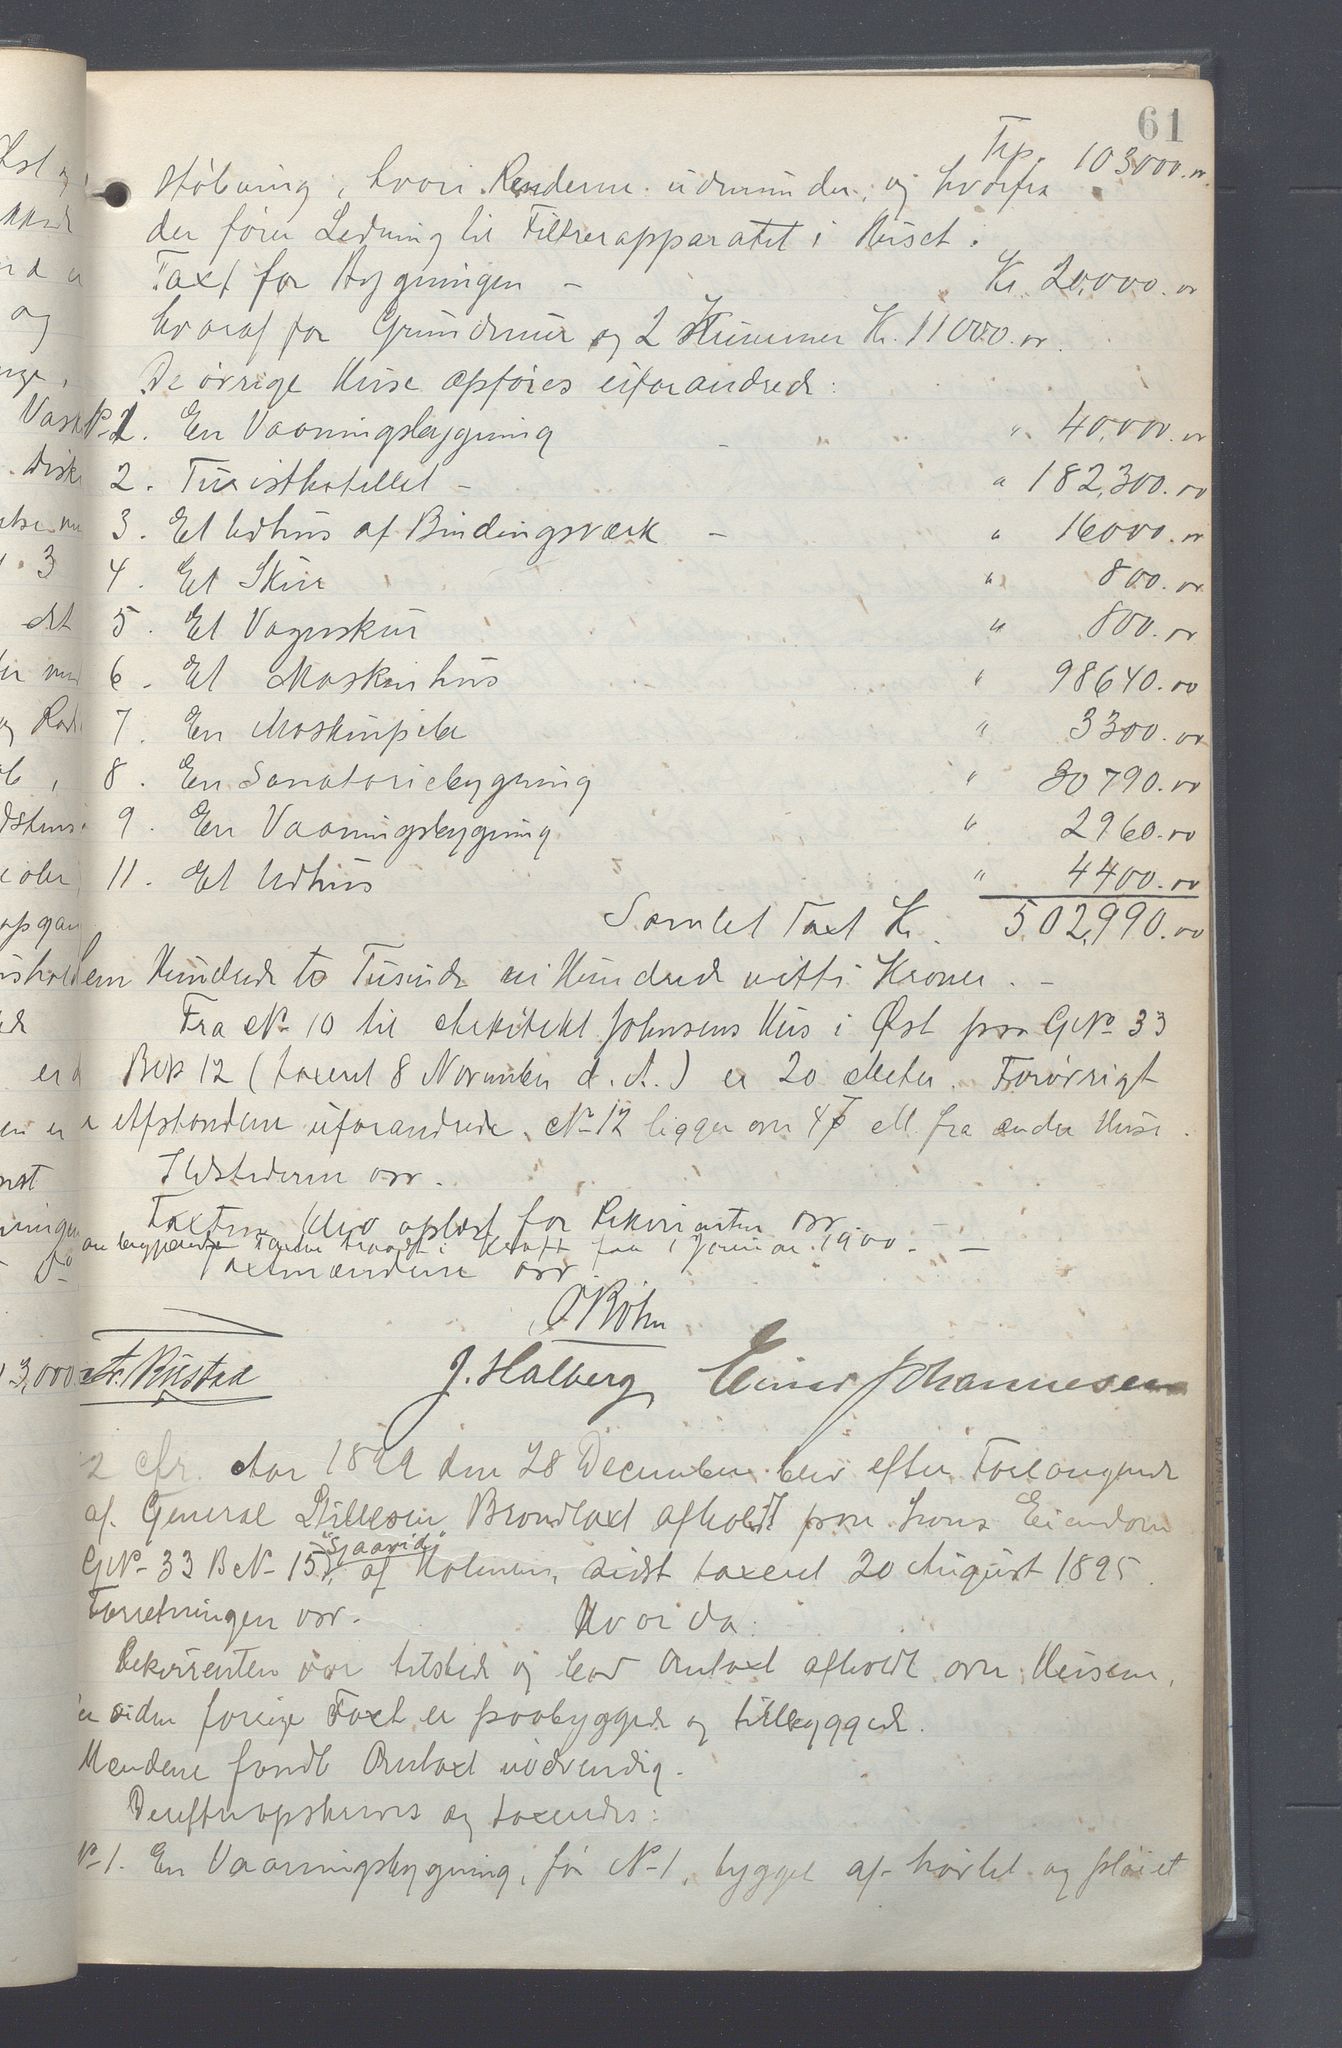 61
Trp. 103000.00
støbning, hvori Renderne udmunder, og hvorfra
der fører Ledning til Filtrerapparatet i Huset.
Taxt for Bygningen – Kr. 20,000.00
hvoraf for Grundmur og 2 Kummer Kr. 11000.00
De øvrige Huse opføres uforandrede:
No 1. En Vaaningsbygning – " 40,000.00
2. Turisthotellet – " 182,300.00
3. Et Udhus af Bindingsværk – " 16000.00
4. Et Skur " 800.00
5. Et Vognskur " 800.00
6. Et Maskinhus " 98640.00
7. En Maskinpibe " 3300.00
8. En Sanatoriebygning " 30790.00
9. En Vaaningsbygning " 2960.00
11. Et Udhus " 4400.00
Samlet Taxt Kr. 502,990.00
Fem Hundrede to Tusinde ni Hundrede nitti Kroner. –
Fra No 10 til Arkitekt Johnsens Hus i Øst paa GNo 33
BNo 12 (taxeret 8 November d. A.) er 20 Meter. Forøvrigt
er Afstandene uforandrede. No 12 ligger over 45 M. fra andre Huse.
Ildstederne osv.
Taxten blev oplæst for Rekvirenten osv. –
Taxten traadt i Kraft fra 1 Januar 1900. –
Taxtmændene osv.
O Bøhn
Fr. Bustad J. Halberg Einar Johannesen
2 cfr. Aar 1899 den 28 December blev efter Forlangende
af General Ditlesen Brandtaxt afholdt paa hans Eiendom
GNo 33 BNo 15, "Sjaavid" af Holmen, sidst taxeret 20 August 1895.
Forretningen osv. Hvorda:
Rekvirenten var tilstede og bad Omtaxt afholdt over Husene,
der siden forrige Taxt er paabyggede og tilbyggede.
Mændene fandt Omtaxt nødvendig.
Derefter opskreves og taxeredes:
No 1. En Vaaningsbygning, før No 1, bygget af høvlet og pløiet